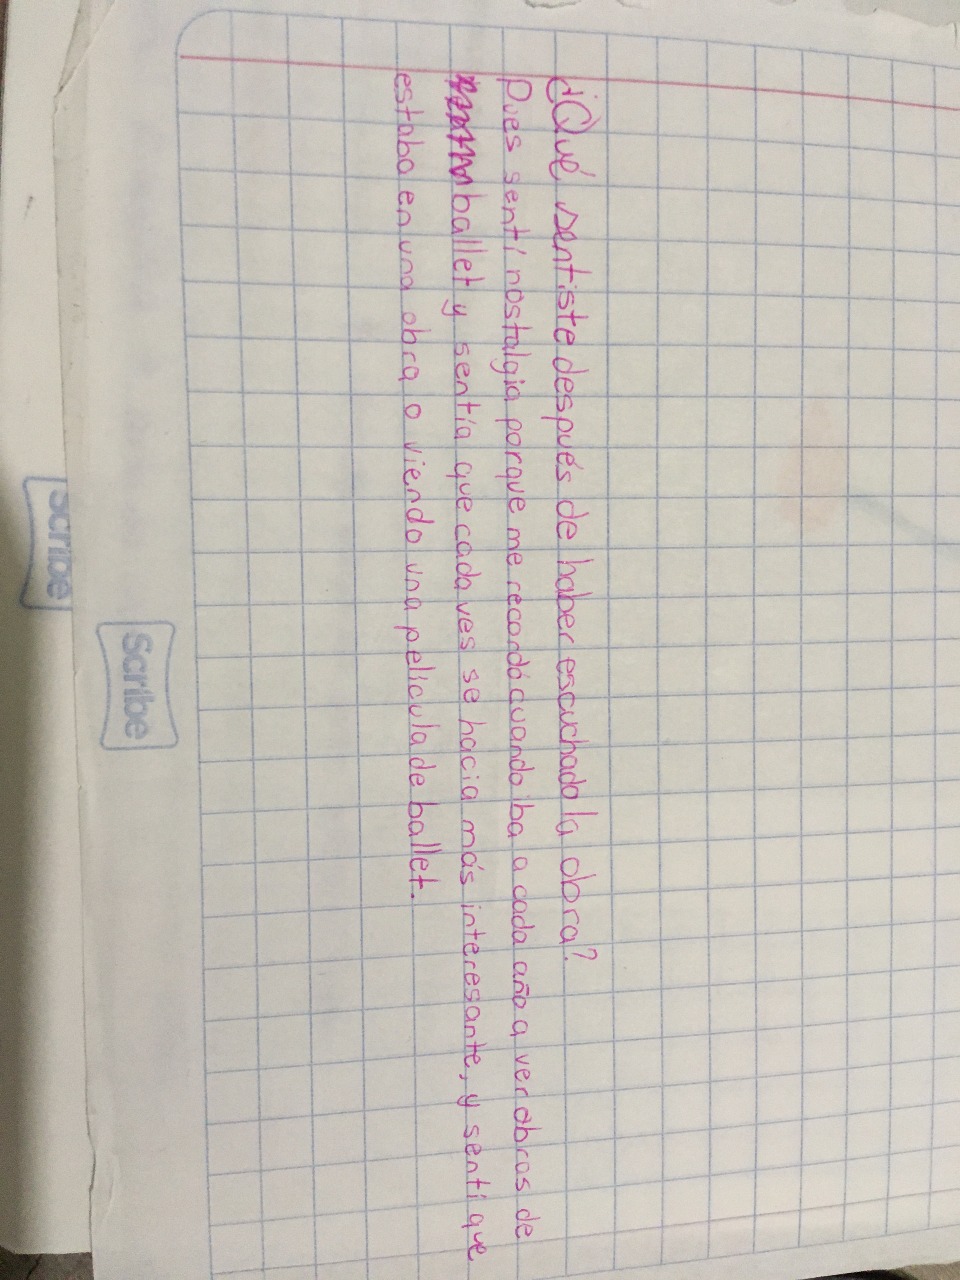 ¿Qué sentiste después de haber escuchado la obra?
Pues sentí nostalgia porque me recordó cuando iba a cada año a ver obras de
ballet y sentía que cada ves se hacia más interesante, y sentí que
estaba en una obra o viendo una pelicula de ballet.
Scribe
Scribe